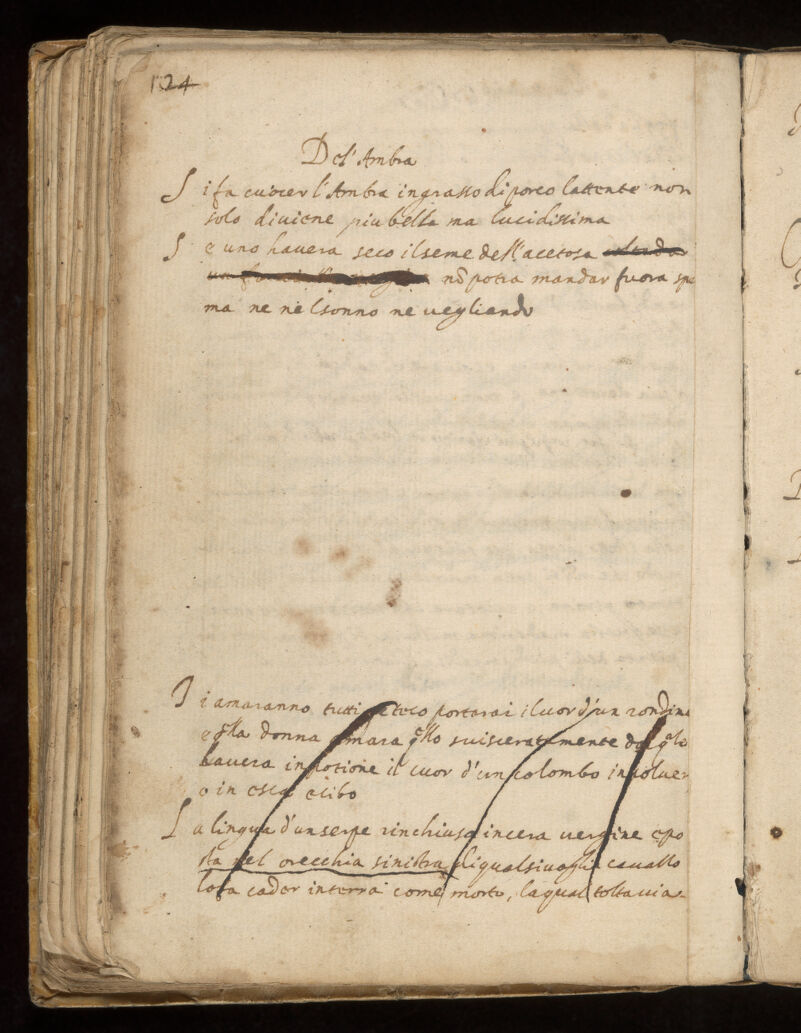 124
Del'Ambra
Si fa cuocer l'Ambra in grasso di porco lattente non
solo diviene piu bella ma lucidissima
Se uno havera seco il seme dell'acetosa
nõ potra mandar fuora sper
ma ne nel sonno ne vegliando
Ti amaranno tutti se teco portarai il cuor d'un rondine
e qlla donna amara qllo svisceratamente dal qlo
havera in potione il cuor d'un colombo in polve
o in esca e cibo
La lingua d'un serpe rinchiusa in cera vergine e po
sta nel orecchia sinistra di qualsivogli cavallo
lo fa cader in terra come morto, la qual tolta via